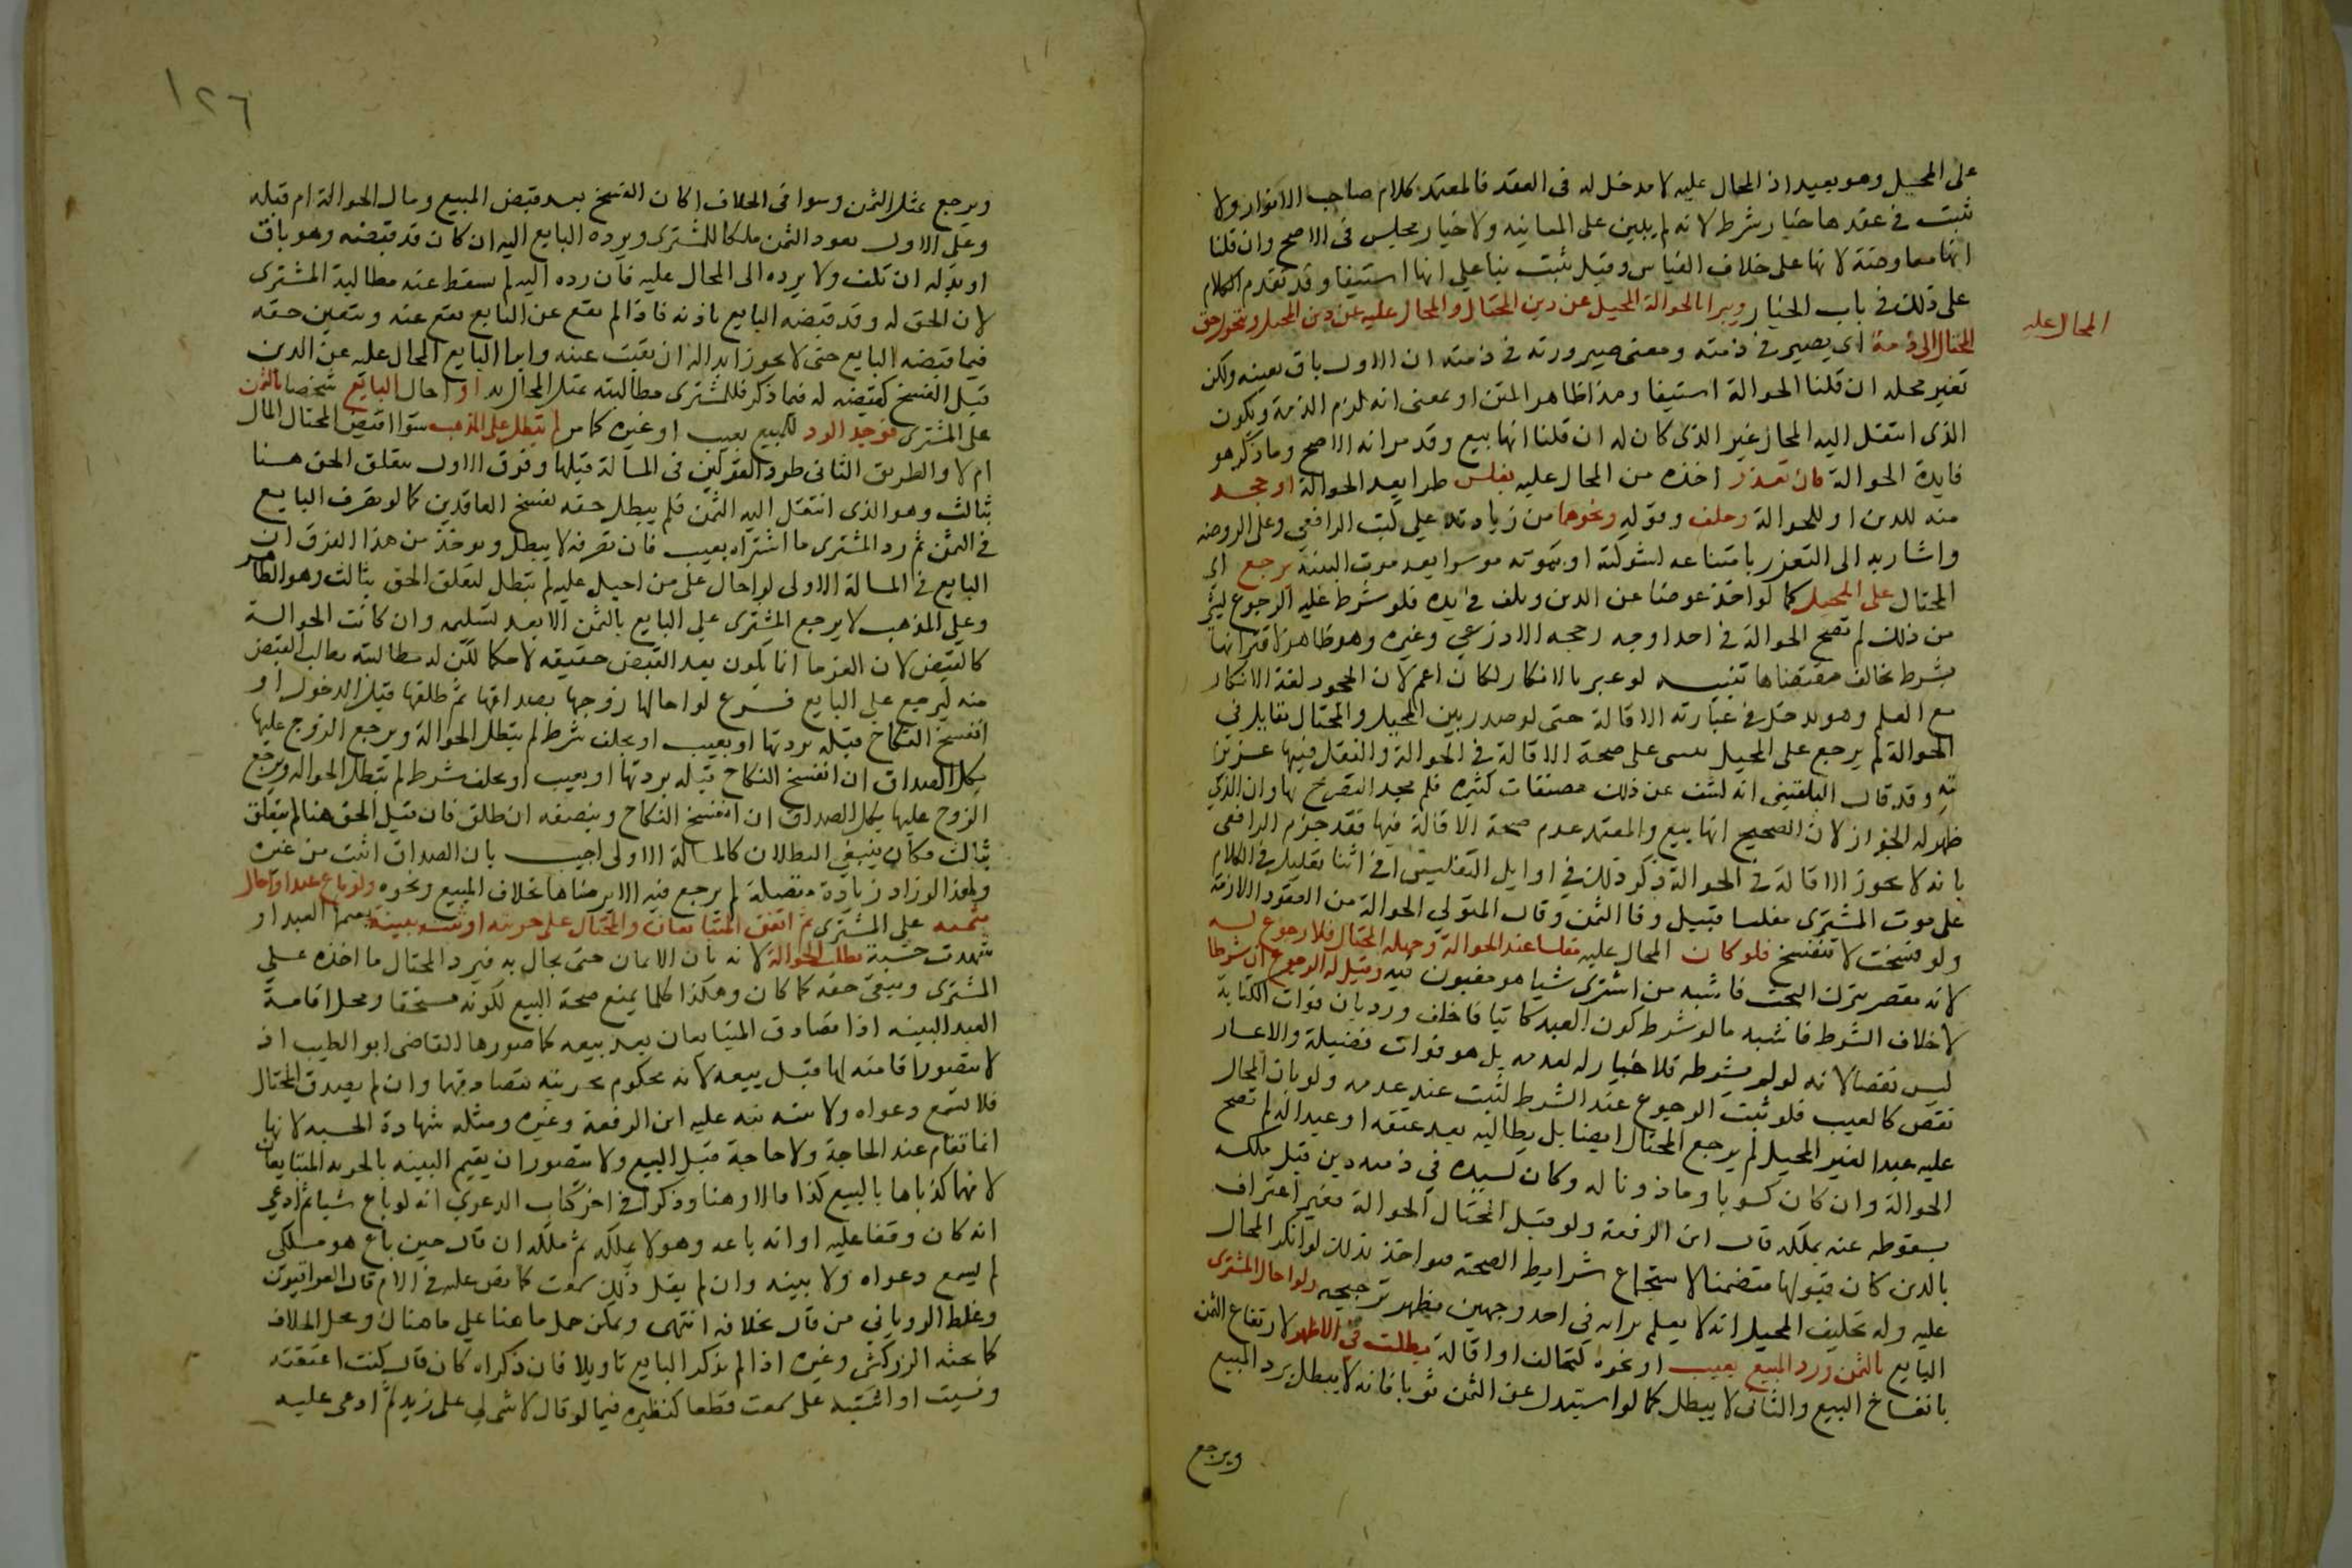 على المحيل وهو بعيد اذ المحال عليه لا مدخل له فى العقد فالمعتمد كلام صاحب الانوار ولا
يثبت فى عقدها خيار شرط لانه لم يبن على المعاينه ولا خيار مجلس فى الاصح وان قلنا
انها معاوضة لانها على خلاف القياس وقيل يثبت بنا على انها استيفا وقد تقدم الكلام
على ذلك فى باب الخيار ويبرا بالحوالة المحيل عن دين المحتال والمحال عليه عن دين المحيل ويتحول حق
المحال عليه
المحتال الى ذمة اى يصير فى ذمته ومعنى صيرورته فى ذمته ان الاول باق بعينه ولكن
تغير محله ان قلنا الحوالة استيفا وهذا ظاهر المتن او بمعنى انه لزم الذمة ويكون
الذى انتقل اليه المحال غير الذى كان له ان قلنا انها بيع وقد مر انه الاصح وما ذكر هو
فايدة الحوالة فان تعذر اخذه من المحال عليه بفلس طرا بعد الحوالة او جحد
منه للدين او للحوالة وحلف وقوله ونحوهما من زيادته على كتب الرافعي وعلى الروضه
واشار به الى التعزر بامتناعه لشوكته او بموته موسرا بعد موت البينه لم يرجع اى
المحتال على المحيل كما لو اخذ عوضا عن الدين وتلف فى يده فلو شرط عليه الرجوع بشئ
من ذلك لم تصح الحوالة فى احد اوجه رجحه الاذرعي وغيره وهو ظاهر لاقترانها
بشرط يخالف مقتضاها تنبيه لو عبر بالانكار لكان اعم لان الجحود لغة الانكار
مع العلم وهو يدخل فى عبارته الاقالة حتى لو صدر بين المحيل والمحتال تقايل فى
الحوالة لم يرجع على المحيل بنى على صحة الاقالة فى الحوالة والنقل فيها عزيز
وقد قال البلقيني انه كشف عن ذلك مصنفات كثيره فلم يجد التصريح بها وان الذى
ظهر له الجواز لان الصحيح انها بيع والمعتمد عدم صحة الاقالة فيها فقد جزم الرافعي
بانه لا يجوز الاقالة فى الحوالة ذكر ذلك فى اوايل التفليس فى اثنا تعليل فى الكلام
على موت المشترى مفلسا قبيل وفا الثمن وقال المتولي الحوالة من العقود اللازمة
ولو فسخت لا تنفسخ فلو كان المحال عليه مفلسا عند الحوالة وجهله المحتال فلا رجوع له
لانه مقصر بترك البحث فاشبه من اشترى شيا هو مغبون فيه وقيل له الرجوع ان شرط
لاخلاف الشرط فاشبه ما لو شرط كون العبد كاتبا فاخلف ورد بان فوات الكتابة
ليس نقصا لانه لو لم يشرطه فلا خيار له لعدمه بل هو فوات فضيلة والاعسار
نقص كالعيب فلو ثبت الرجوع عند الشرط لثبت عند عدمه ولو بان المحال
عليه عبدا لغير المحيل لم يرجع المحتال ايضا بل يطالبه بعد عتقه او عبدا له لم تصح
الحوالة وان كان كسوبا وماذونا له وكان لسيده فى ذمته دين قبل ملكه
بسقوطه عنه بملكه قال ابن الرفعة ولو قبل المحتال الحوالة بغير اعتراف
بالدين كان قبولها متضمنا لاستجماع شرايط الصحة فيواخذ بذلك لو انكر المحال
عليه وله تحليف المحيل انه لا يعلم براته فى احد وجهين يظهر ترجيحه ولو احال المشترى
البايع بالثمن ورد المبيع بعيب او نحوه كتحالف او اقالة بطلت فى الاظهر لارتفاع الثمن
بانفساخ البيع والثانى لا يبطل كما لو استبدل عن الثمن ثوبا فانه لا يبطل برد المبيع
ويرجع
١٢٦
ويرجع بمثل الثمن وسوا فى الخلاف اكان الفسخ بعد قبض المبيع ومال الحوالة ام قبله
وعلى الاول يعود الثمن ملكا للمشترى ويرده البايع اليه ان كان قد قبضه وهو باق
او بدله ان تلف ولا يرده الى المحال عليه فان رده اليه لم يسقط عنه مطالبة المشترى
لان الحق له وقد قبضه البايع باذنه فاذا لم يقع عن البايع يقع عنه ويتعين حقه
فيما قبضه البايع حتى لا يجوز ابداله ان بقيت عينه وابرا البايع المحال عليه عن الدين
قبل الفسخ كقبضه له فيما ذكر فللمشترى مطالبته بمثل المحال به او احال البايع شخصا بالثمن
على المشترى فوجد الرد للمبيع بعيب او غيره كما مر لم تبطل على المذهب سوا اقبض المحتال المال
ام لا والطريق الثانى طرد القولين فى المسالة قبلها وفرق الاول بتعلق الحق هنا
بثالث وهو الذى انتقل اليه الثمن فلم يبطل حقه بفسخ العاقدين كما لو تصرف البايع
فى الثمن ثم رد المشترى ما اشتراه بعيب فان تصرفه لا يبطل ويوخذ من هذا الفرق ان
البايع فى المسالة الاولى لو احال على من احيل عليه لم تبطل لتعلق الحق بثالث وهو الظاهر
وعلى المذهب لا يرجع المشترى على البايع بالثمن الا بعد تسليمه وان كانت الحوالة
كالقبض لان الغرما انما يكون بعد القبض حقيقه لا حكما لكن له مطالبته بطالب القبض
منه ليرجع على البايع فرع لو احالها زوجها بصداقها ثم طلقها قبل الدخول او
انفسخ النكاح قبله بردتها او بعيب او بخلف شرط لم تبطل الحوالة ويرجع الزوج عليها
بكل الصداق ان انفسخ النكاح قبله بردتها او بعيب او بخلف شرط لم تبطل الحواله ويرجع
الزوج عليها بكل الصداق ان انفسخ النكاح وبنصفه ان طلق فان قيل الحق هنا لم يتعلق
بثالث فكان ينبغى البطلان كالمسالة الاولى اجيب بان الصداق اثبت من غيره
ولهذا لو زاد زيادة متصلة لم يرجع فيه الا برضاها بخلاف المبيع ونحوه ولو باع عبدا واحال
بثمنه على المشترى ثم اتفق المتبايعان والمحتال على حريته او ثبتت ببينة العبد او
شهدت حسبة بطلت الحوالة لانه بان الا ثمن حتى يحال به فيرد المحتال ما اخذه على
المشترى ويبقى حقه كما كان وهكذا كلما يمنع صحة البيع لكونه مستحقا ومحل اقامة
العبد البينه اذا تصادق المتبايعان بعد بيعه كما صورها القاضى ابو الطيب اذ
لا يتصور اقامته لها قبل بيعه لانه محكوم بحريته بتصادقهما وان لم يصدق المحتال
فلا تسمع دعواه ولا بينته نبه عليه ابن الرفعة وغيره ومثله شهادة الحسبه لانها
انما تقام عند الحاجة ولا حاجة قبل البيع ولا يتصور ان يقيم البينه بالحريه المتبايعان
لانهما كذباها بالبيع كذا قالاه هنا وذكرا فى اخر كتاب الدعوي انه لو باع شيا ثم ادعى
انه كان وقفا عليه او انه باعه وهو لا يملكه ثم ملكه ان قال حين باع هو ملكى
لم تسمع دعواه ولا بينه وان لم يقل ذلك سمعت كما نص عليه فى الام قال العراقيون
وغلط الروياني من قال بخلافه انتهى ويمكن حمل ما هنا على ما هناك ومحل الخلاف
كما بحثه الزركشى وغيره اذا لم يذكر البايع تاويلا فان ذكراه كان قال كنت اعتقته
ونسيت او اشتبه على سمعت قطعا كنظيره فيما لو قال لا شى لى على زيد ثم ادعى عليه